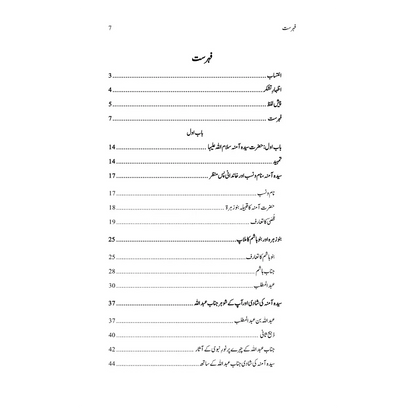 فہرست 7
فہرست
انتساب 3
اظہارِ تشکر 4
پیش لفظ 5
فہرست 7
باب اول
باب اول: حضرت سیدہ آمنہ سلام اللہ علیہا 14
تمہید 14
سیدہ آمنہ، نام و نسب اور خاندانی پس منظر 17
نام و نسب 17
حضرت آمنہ کا قبیلہ بنو زہرہ 17
قصی کا تعارف 19
بنو زہرہ اور بنو ہاشم کا ملاپ 25
بنو ہاشم کا تعارف 25
جناب ہاشم 28
عبد المطلب 30
سیدہ آمنہ کی شادی اور آپ کے شوہر جناب عبد اللہ 37
عبد اللہ بن عبد المطلب 37
ذبیح ثانی 40
جناب عبد اللہ کے چہرے پر نورِ نبوی کے آثار 42
سیدہ آمنہ کی شادی جناب عبد اللہ کے ساتھ 44